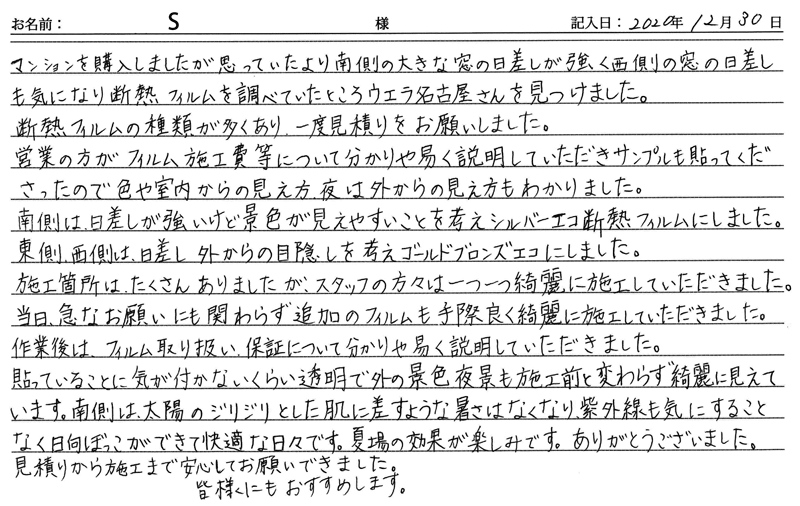 お名前： S 様 記入日：2020年12月30日
マンションを購入しましたが思っていたより南側の大きな窓の日差しが強く西側の窓の日差し
も気になり断熱フィルムを調べていたところウエラ名古屋さんを見つけました。
断熱フィルムの種類が多くあり、一度見積りをお願いしました。
営業の方がフィルム施工費等について分かりや易く説明していただきサンプルも貼ってくだ
さったので色や室内からの見え方、夜は外からの見え方もわかりました。
南側は、日差しが強いけど景色が見えやすいことを考えシルバーエコ断熱フィルムにしました。
東側、西側は、日差し外からの目隠しを考えゴールドブロンズエコにしました。
施工箇所は、たくさんありましたが、スタッフの方々は一つ一つ綺麗に施工していただきました。
当日、急なお願いにも関わらず追加のフィルムも手際良く綺麗に施工していただきました。
作業後は、フィルム取り扱い、保証について分かりや易く説明していただきました。
貼っていることに気が付かないくらい透明で外の景色夜景も施工前と変わらず綺麗に見えて
います。南側は、太陽のジリジリとした肌に差すような暑さはなくなり、紫外線も気にすること
なく日向ぼっこができて快適な日々です。夏場の効果が楽しみです。ありがとうございました。
見積りから施工まで安心してお願いできました。
皆様くにもおすすめします。